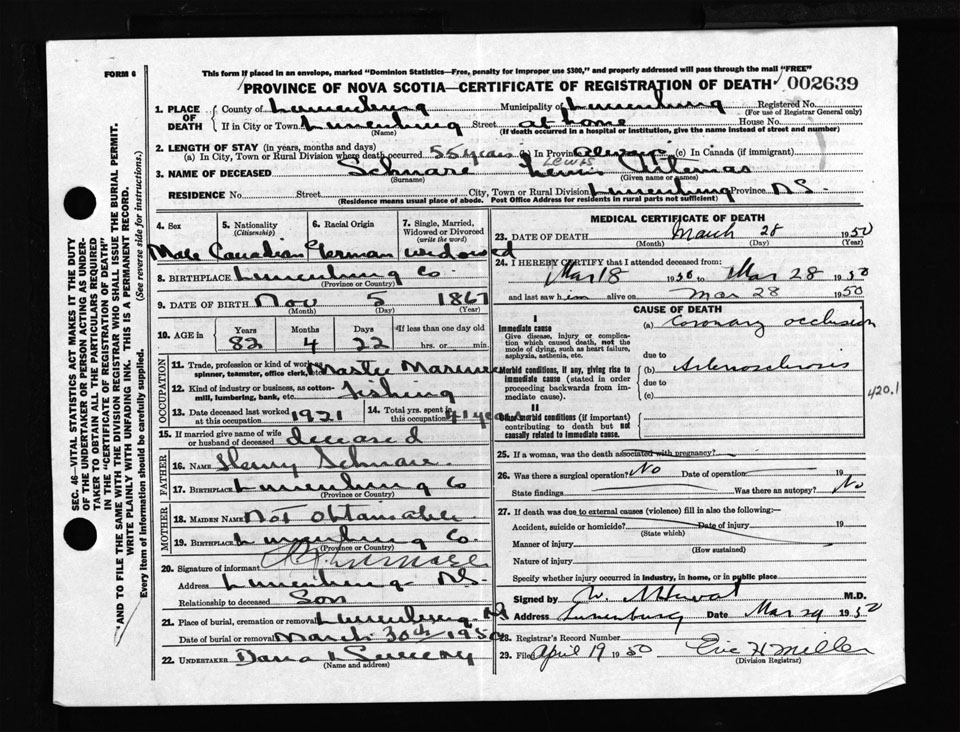 FORM 6
This form if placed in an envelope, marked "Dominion Statistics—Free, penalty for improper use $300," and properly addressed will pass through the mail "FREE"
PROVINCE OF NOVA SCOTIA—CERTIFICATE OF REGISTRATION OF DEATH 002639
1. PLACE OF DEATH County of Lunenburg Municipality of Lunenburg Registered No.
(For use of Registrar General only)
If in City or Town Lunenburg Street at home House No.
(Name) (If death occurred in a hospital or institution, give the name instead of street and number)
2. LENGTH OF STAY (in years, months and days)
(a) In City, Town or Rural Division where death occurred 55 years (b) In Province always (c) In Canada (if immigrant)
LEWIS
3. NAME OF DECEASED Schnare Lewis
(Surname) (Given name or names)
RESIDENCE No. Street City, Town or Rural Division Lunenburg Province N.S.
(Residence means usual place of abode. Post Office Address for residents in rural parts not sufficient)
4. Sex 5. Nationality (Citizenship) 6. Racial Origin 7. Single, Married, Widowed or Divorced (write the word)
Male Canadian German widowed
8. BIRTHPLACE Lunenburg Co.
(Province or Country)
9. DATE OF BIRTH Nov 5 1867
(Month) (Day) (Year)
10. AGE Years Months Days If less than one day old
82 4 22 hrs. or min.
OCCUPATION
11. Trade, profession or kind of work as spinner, teamster, office clerk, etc. Master Mariner
12. Kind of industry or business, as cotton-mill, lumbering, bank, etc. Fishing
13. Date deceased last worked at this occupation 1921
14. Total yrs. spent in this occupation 41 years
15. If married give name of wife or husband of deceased deceased
FATHER
16. NAME Henry Schnare
17. BIRTHPLACE Lunenburg Co
(Province or Country)
MOTHER
18. MAIDEN NAME Not Obtainable
19. BIRTHPLACE Lunenburg Co.
(Province or Country)
20. Signature of informant
Address Lunenburg N.S.
Relationship to deceased Son
21. Place of burial, cremation or removal Lunenburg, NS
Date of burial or removal March 30th 1950
22. UNDERTAKER Dana L Sweeny
(Name and address)
MEDICAL CERTIFICATE OF DEATH
23. DATE OF DEATH March 28 1950
(Month) (Day) (Year)
24. I HEREBY CERTIFY that I attended deceased from:
Mar 18 1950 to Mar 28 1950
and last saw him alive on Mar 28 1950
CAUSE OF DEATH
I
Immediate cause (a) Coronary occlusion
Give disease, injury or complication which caused death, not the mode of dying, such as heart failure, asphyxia, asthenia, etc.
due to
Morbid conditions, if any, giving rise to immediate cause (stated in order proceeding backwards from immediate cause). (b) Arteriosclerosis
due to
(c)
420.1
II
Other morbid conditions (if important) contributing to death but not causally related to immediate cause.
25. If a woman, was the death associated with pregnancy?
26. Was there a surgical operation? No Date of operation 19
State findings Was there an autopsy? No
27. If death was due to external causes (violence) fill in also the following:—
Accident, suicide or homicide? Date of injury 19
(State which)
Manner of injury
(How sustained)
Nature of injury
Specify whether injury occurred in industry, in home, or in public place
Signed by M.D.
Address Lunenburg Date Mar 29 1950
28. Registrar's Record Number
29. Filed April 19 1950 Eric H Miller
(Division Registrar)
SEC. 46—VITAL STATISTICS ACT MAKES IT THE DUTY
OF THE UNDERTAKER OR PERSON ACTING AS UNDER-
TAKER TO OBTAIN ALL THE PARTICULARS REQUIRED
IN THE "CERTIFICATE OF REGISTRATION OF DEATH"
AND TO FILE THE SAME WITH THE DIVISION REGISTRAR WHO SHALL ISSUE THE BURIAL PERMIT.
WRITE PLAINLY WITH UNFADING INK. THIS IS A PERMANENT RECORD.
Every item of information should be carefully supplied. (See reverse side for instructions.)